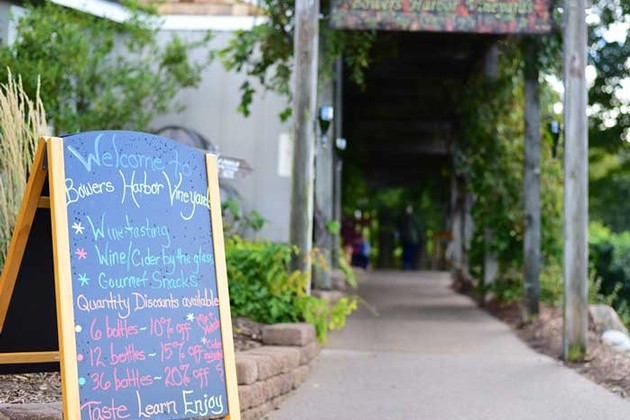 Bowers Harbor Vineyards
Welcome to
Bowers Harbor Vineyard
* Wine tasting
* Wine/Cider by the glass
* Gourmet Snacks
Quantity Discounts available
• 6 bottles ~ 10% off
• 12 bottles ~ 15% off
• 36 bottles ~ 20% off
Taste Learn Enjoy